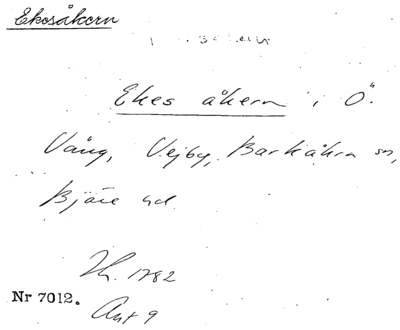 Ekesåkern
Ekes åkern i Ö.
Vång, Vejby, Barkåkra sn,
Bjäre hd.
Nr 7012.
1782
Akt 9